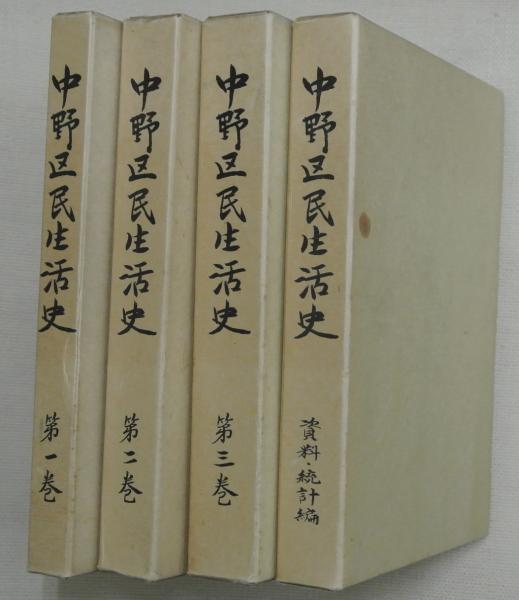 中野区民生活史
第一巻
中野区民生活史
第二巻
中野区民生活史
第三巻
中野区民生活史
資料・統計編